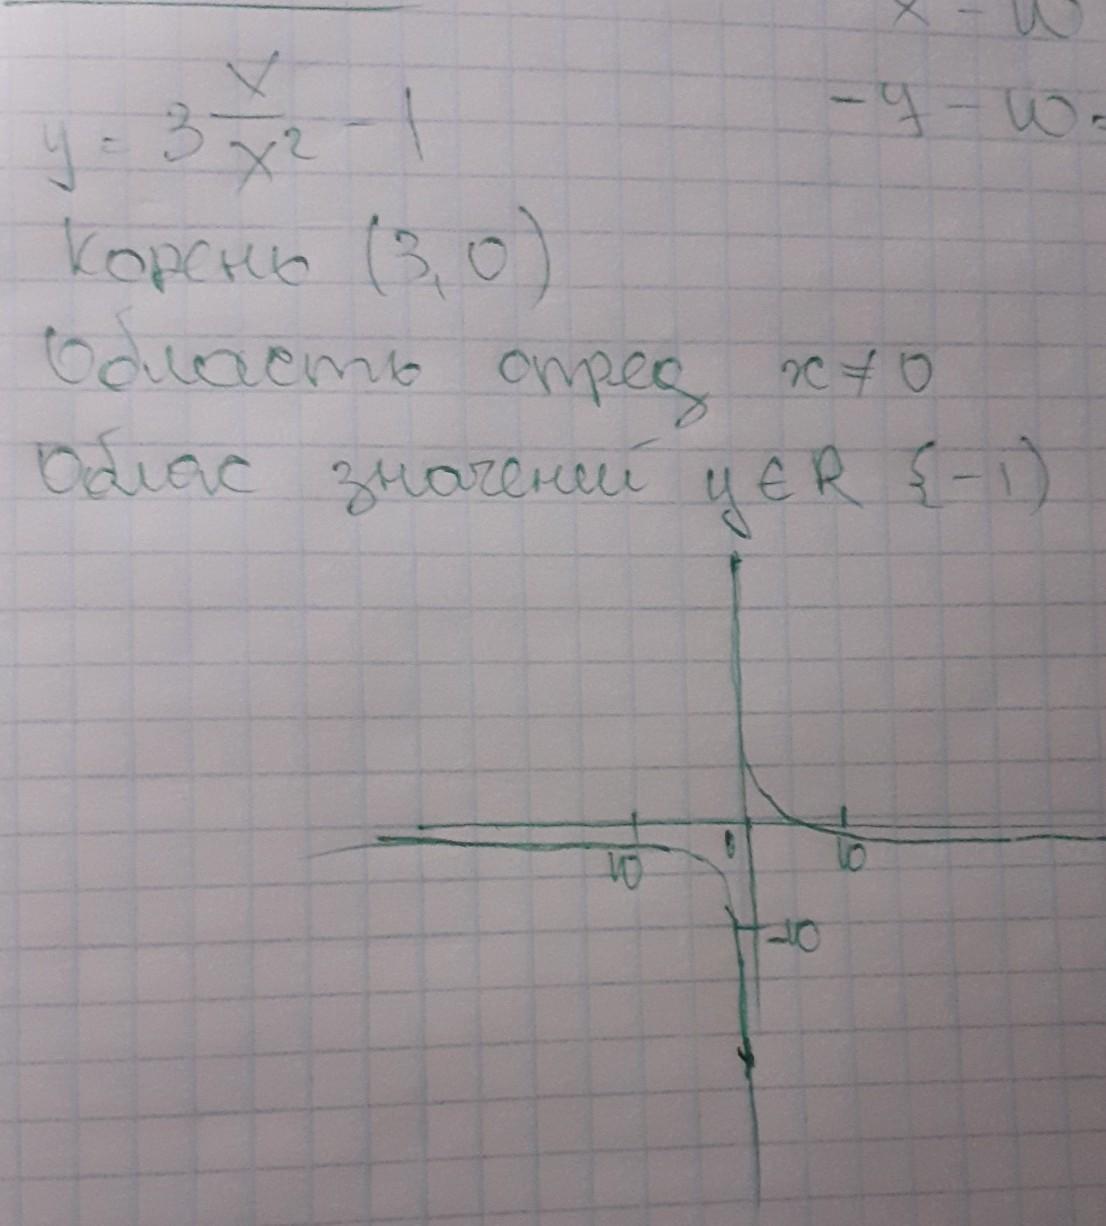 x - 10
-y - 10 =
y = 3 x/x² - 1
Корень (3, 0)
Область опред x ≠ 0
Облас значений y ∈ R {-1)
10 0 10
-10